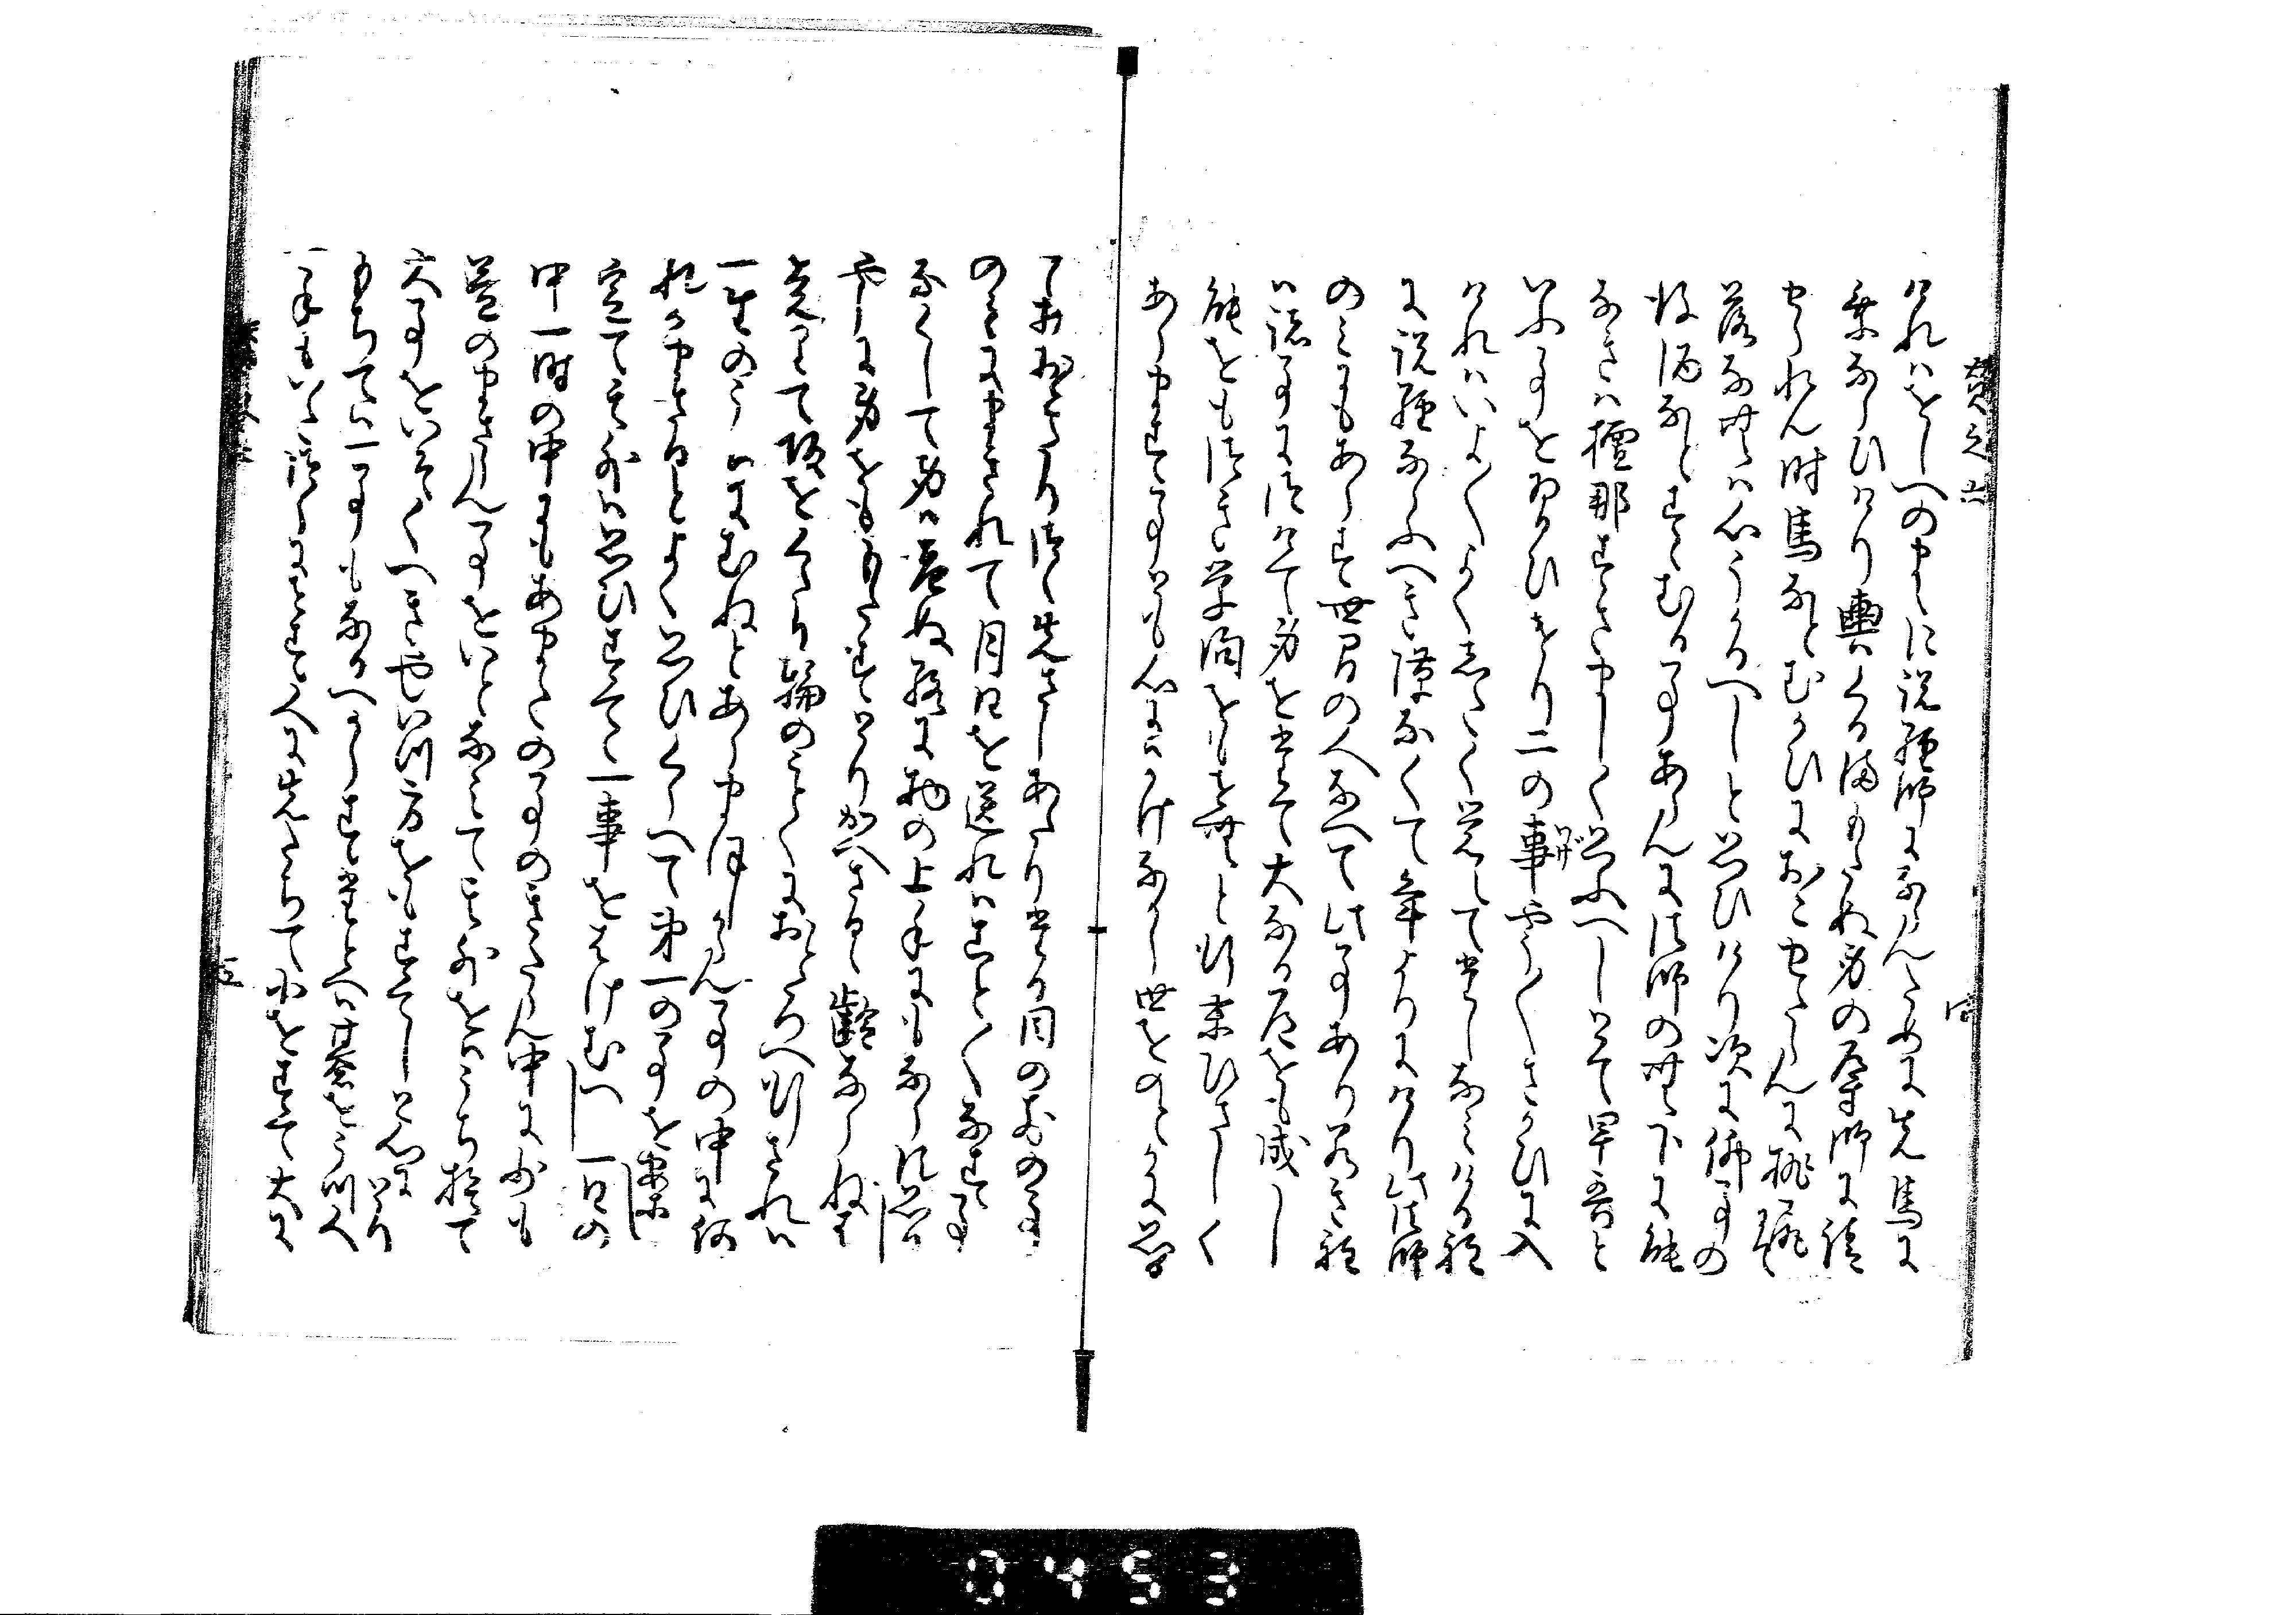 賛之六
四
けれはをしへのまゝに説経師にならんために先馬に
乗ならひけり輿くるまもたぬ身の導師に請
せられん時馬なとむかひにおこせたらんに桃尻にて
落なむは心うかるへしと思ひけり次に佛事の
後酒なとすゝむる事あらんに法師の無下に能
なきは檀那すさましく思ふへしとて早哥と
いふ事をならひけり二の事やう〱さかひに入
けれはいよ〱よくしたく覚えてたしなみける程
に説経ならふへき隙なくて年よりにけり此法師
のみにもあらす世間の人なへて此事あり若き程
は諸事につけて身を立て大なる道をも成し
能をもつき学問をもせむと行末ひさしく
あらます事とも心にはかけなから世をのとかに思
てうちおこたりつゝ先さしあたりたる目の前の事
のみにまきれて月日を送れはこと〱なす事
なくして身は老ぬ終に物の上手にもならす思し
やうに身をももたすとりかへさるゝ齢ならねは
走りて坂をくたる輪のことくにおとろへ行されは
一生のうちにむねとあらまほしからん事の中に何
れかまさるとよく思ひくらへて第一の事を案し
定て其外は思ひすてゝ一事をはけむへし一日の
中一時の中にもあまたの事のきたらん中に少も
益のまさらん事をいとなみて其外をはうち捨て
大事をいそくへき也いつ方をもすてしと心にとり
もちては一事もなるへからすたとへは碁をうつ人
一手もいたつらにせす人に先たちて小をすて大に
五
0453